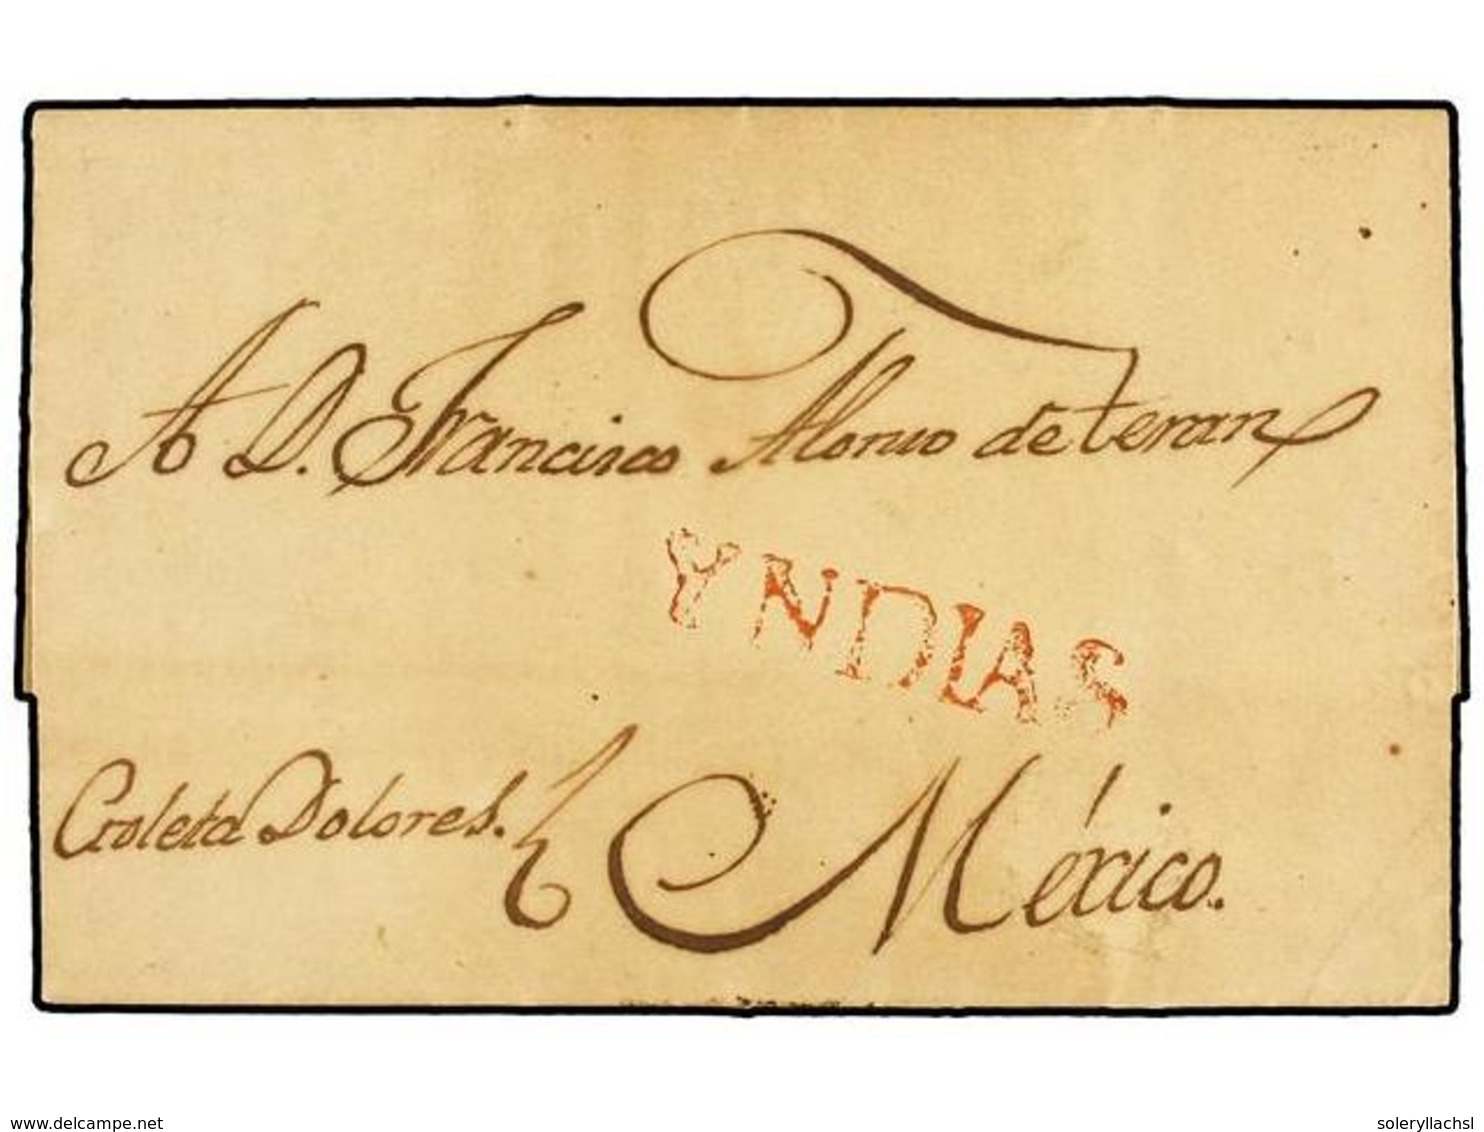 A D. Francisco Alonso de teran
YNDIAS
Goleta Dolores.
México.
delcampe.net
soleryllachsl